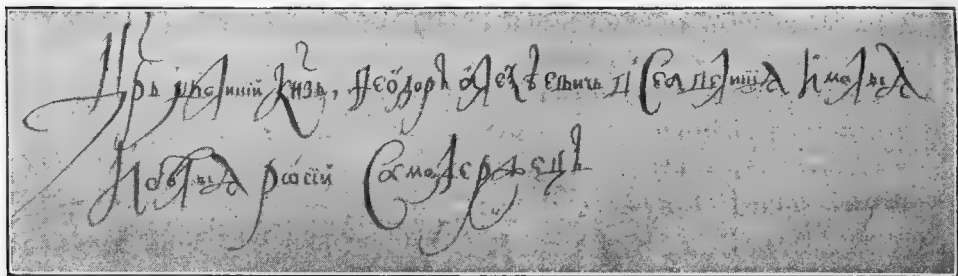 Црь ивелиіий Кнзь, Ѳеѡдоръ алеѯѣевичь всеа великиіѧ ималыѧ
Ибѣлыѧ рѡсіи Самодержецъ